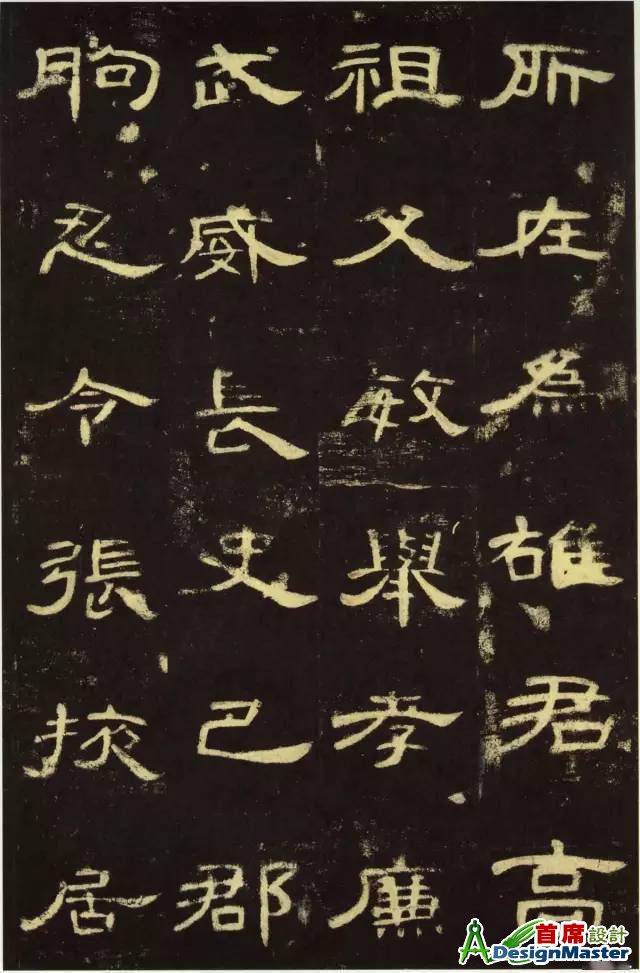 所在為雄君高
祖父敏舉孝廉
武威長史巴郡
朐忍令張掖居
首席設計
DesignMaster